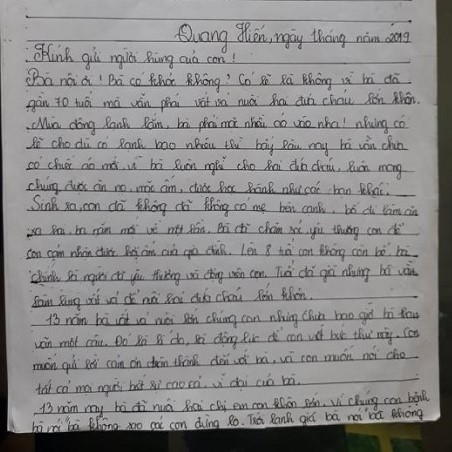 Quang Hiến, ngày tháng năm 2019
Kính gửi người hùng của con!
Bà nội ơi! Bà có khỏe không? Có lẽ là không vì bà đã
gần 70 tuổi mà vẫn phải vất vả nuôi hai đứa cháu lớn khôn.
Mùa đông lạnh lắm, bà phải mặc nhiều áo vào nha! nhưng có
lẽ cho dù có lạnh bao nhiêu thì bấy lâu nay bà vẫn chưa
có chiếc áo mới, vì bà luôn nghĩ cho hai đứa cháu, luôn mong
chúng được ăn no, mặc ấm, được học hành như các bạn khác.
Sinh ra, con đã không đã không có mẹ bên cạnh, bố đi làm ăn
xa hai, ba năm mới về một lần. Bà đã chăm sóc yêu thương con để
con cảm nhận được hơi ấm của gia đình. Lên 8 tuổi con không còn bố bà
chính là người đã yêu thương và động viên con. Tuổi đã già nhưng bà vẫn
làm lụng vất vả để nuôi hai đứa cháu lớn khôn.
13 năm bà vất vả nuôi lớn chúng con nhưng chưa bao giờ bà than
vãn một câu. Đó là lí do, là động lực để con viết bức thư này. Con
muốn gửi lời cảm ơn chân thành đến với bà, và con muốn nói cho
tất cả mọi người biết sự cao cả, vĩ đại của bà.
13 năm nay bà đã nuôi hai chị em con khôn lớn. Vì chúng con bệnh
bà nói "bà không sao các con đừng lo. Trời lạnh giá bà nói bà không